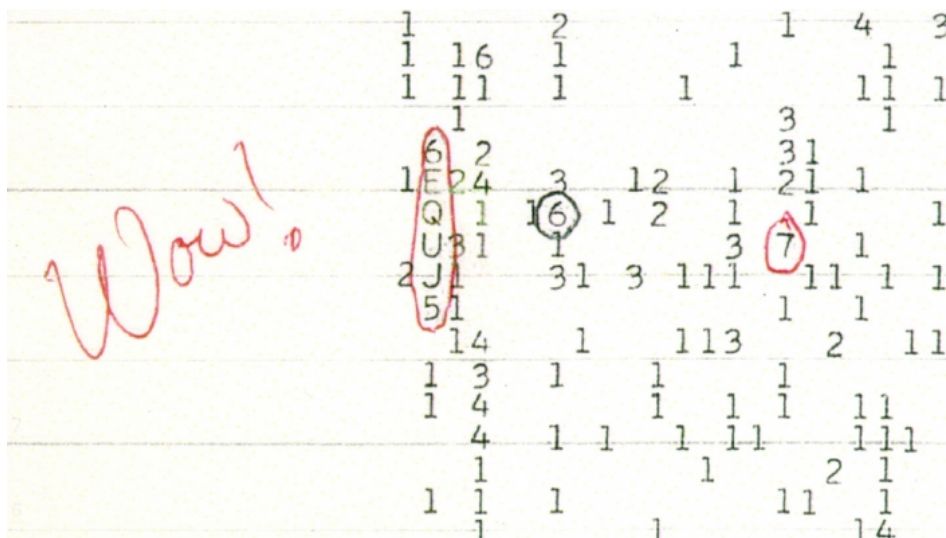 1 2 1 4 3
1 16 1 1 1
1 11 1 1 11 1
1 3 1
6 2 31
1 E24 3 12 1 21 1
Q 1 16 1 2 1 1 1
Wow! U31 1 3 7 1
2J1 31 3 111 11 1 1
51 1 1
14 1 113 2 11
1 3 1 1 1
1 4 1 1 1 11
4 1 1 1 11 111
1 1 2 1
1 1 1 11 1
1 1 14